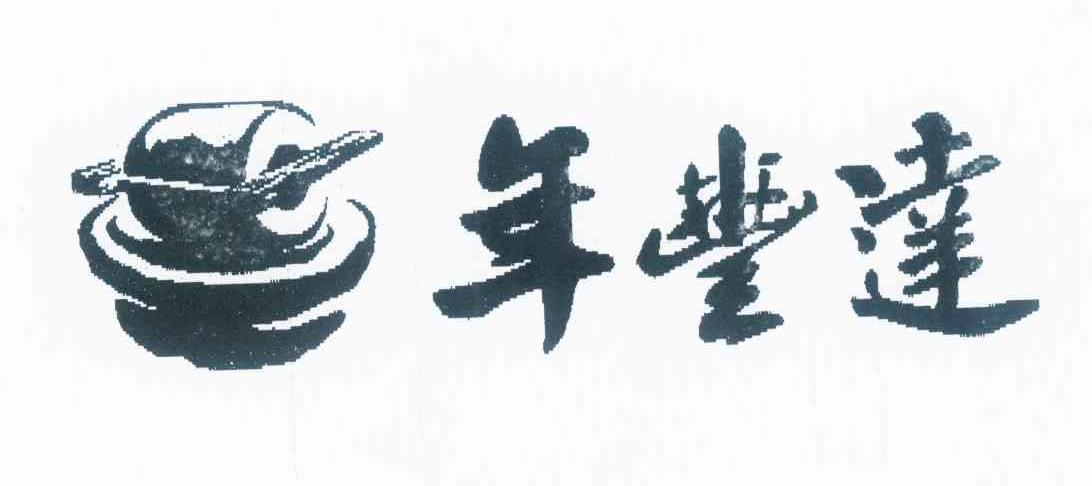 年豐達